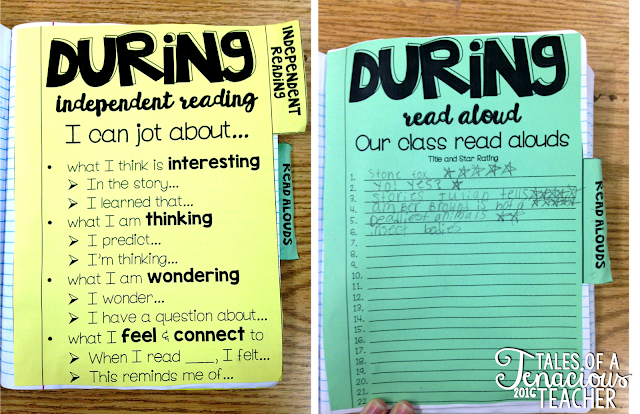 DURING
independent reading
I can jot about...
• what I think is interesting
➤ In the story...
➤ I learned that...
• what I am thinking
➤ I predict...
➤ I'm thinking...
• what I am wondering
➤ I wonder...
➤ I have a question about...
• what I feel & connect to
➤ When I read ____, I felt...
➤ This reminds me of...
INDEPENDENT
READING
READ ALOUDS
DURING
read aloud
Our class read alouds
Title and Star Rating
1. Stone fox ☆☆☆☆☆
2. Yo! Yes? ☆
3. Stories Julian tells ☆☆☆☆
4. Amber Brown is not a ☆☆☆☆☆
5. Deadliest animals ☆☆
6. insect bodies
7.
8.
9.
10.
11.
12.
13.
14.
15.
16.
17.
18.
19.
20.
21.
22.
READ ALOUDS
TALES OF A
Tenacious
2016 TEACHER